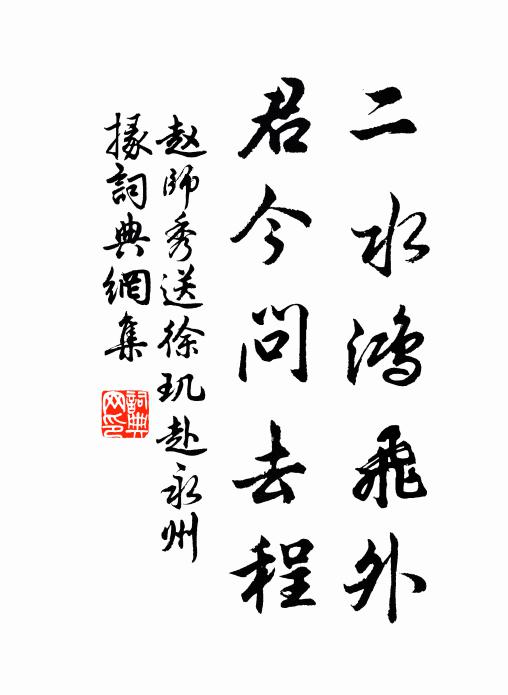 二水鴻飛外
君今問去程
赵師秀送徐玑赴永州
據詞典網集
詞典網印